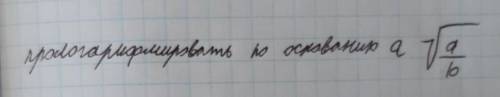 прологарифмировать по основанию a √(a/b)